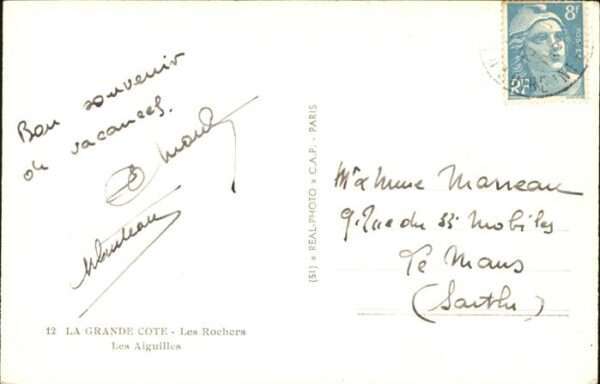 Bon souvenir
de vacances.
12 LA GRANDE COTE - Les Rochers
Les Aiguilles
(51) * REAL-PHOTO * C.A.P. - PARIS
8F
RF
Mr & Mme Marreau
9. Rue du 33 Mobiles
Le Mans
(Sarthe)